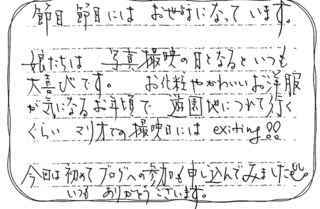 節目節目には お世話になっています。
娘たちは 写真撮映の日となるといつも
大喜びです。 お化粧やかわいいお洋服
が気になるお年頃で 遊園地につれて行く
くらい マリオでの撮映日には exiting!!
今回は初めてブログへの参加も申し込んでみました
いつも ありがとうございます。